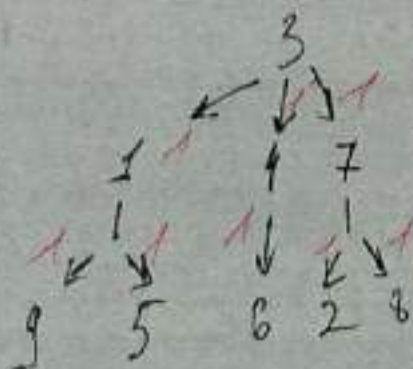 3
1 4 7
9 5 6 2 8